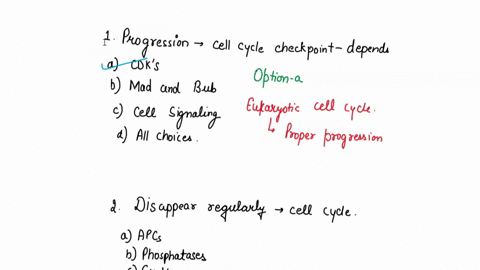 1. Progression → cell cycle checkpoint - depends
a) CDK's
b) Mad and Bub
c) Cell Signaling
d) All choices.
Option-a
Eukaryotic cell cycle.
↳ Proper progression
2. Disappear regularly → cell cycle.
a) APCs
b) Phosphatases